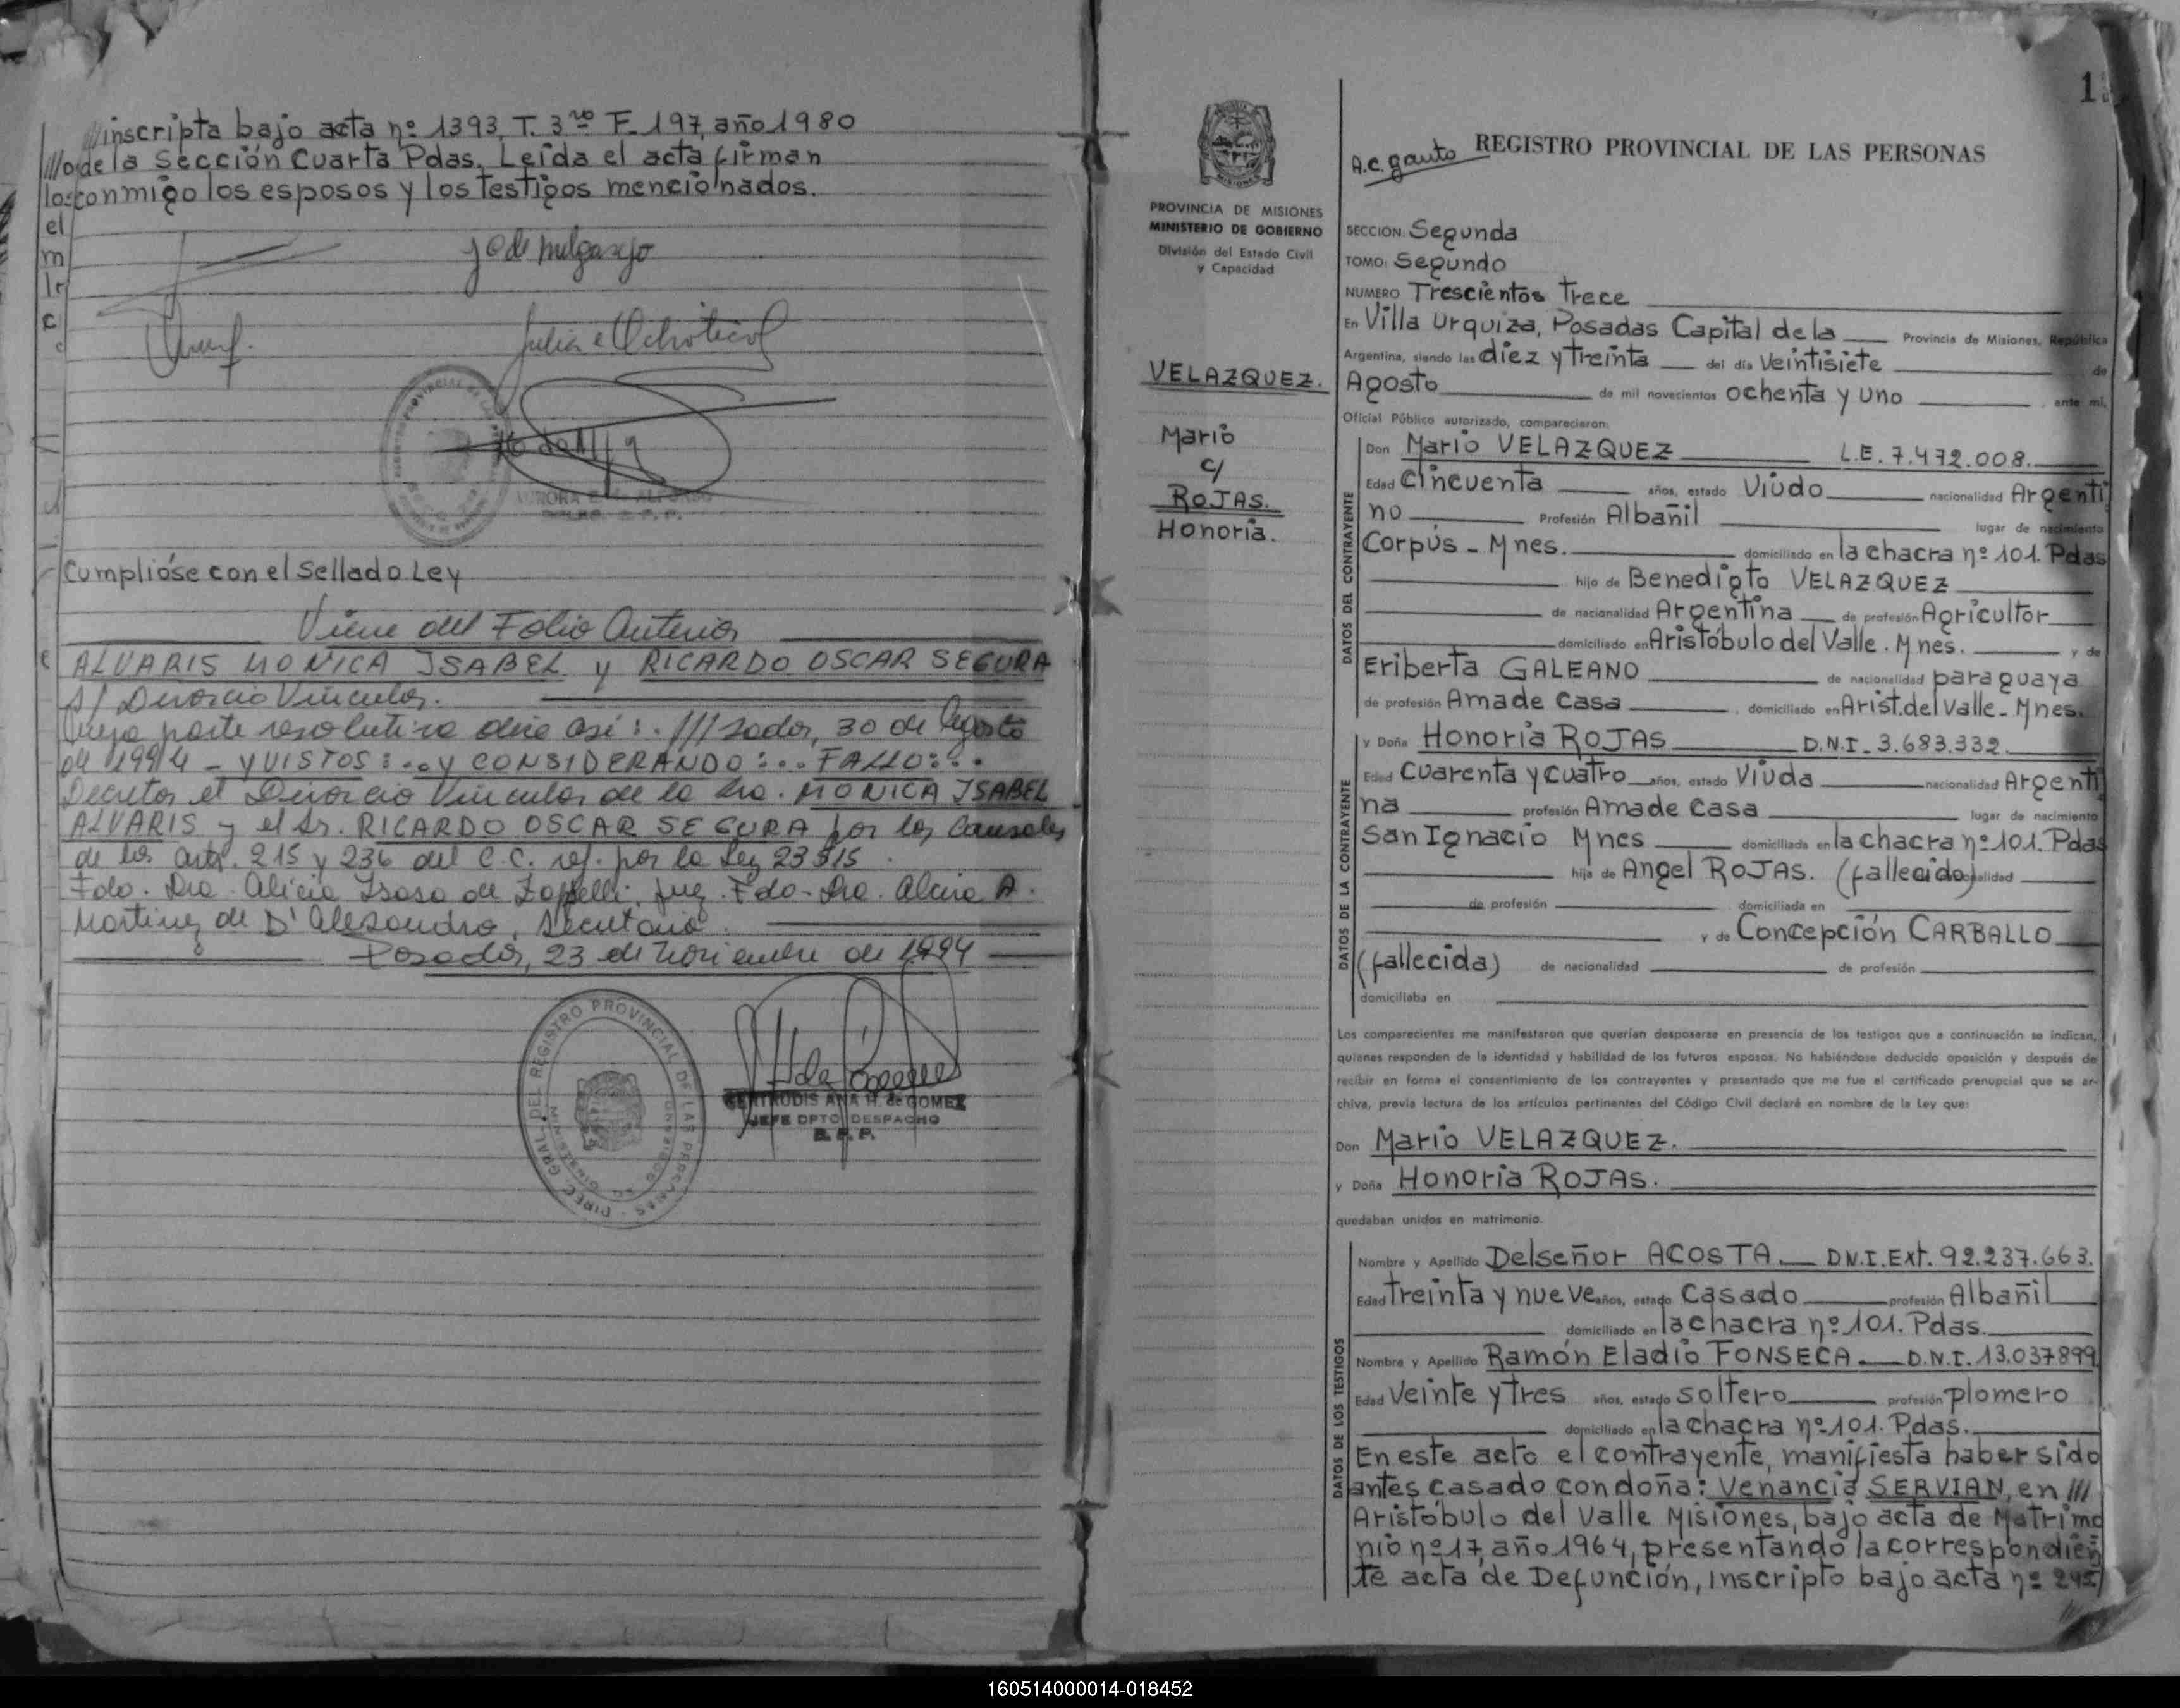 inscripta bajo acta nº 1393, T. 3ro F. 197, año 1980
de la Sección Cuarta Pdas. Leída el acta firman
conmigo los esposos y los testigos mencionados.
Cumplióse con el Sellado Ley
Viene del Folio Anterior
ALVARIS MONICA ISABEL y RICARDO OSCAR SEGURA
s/ Divorcio Vincular.
Cuya parte resolutiva dice así: ///sadas, 30 de Agosto
de 1994 - Y VISTOS:... Y CONSIDERANDO:... FALLO:...
Decretar el Divorcio Vincular de la Sra. MONICA ISABEL
ALVARIS y el Sr. RICARDO OSCAR SEGURA por las Causales
de los arts. 215 y 236 del C.C. ref. por la Ley 23515.
Fdo. Dra. Alicia de Juez. Fdo. Dra. A.
Martinez de D'Alesandro, Secretaria.
Posadas, 23 de Noviembre de 1994
DIREC. GRAL. DEL REGISTRO PROVINCIAL DE LAS PERSONAS
GERTRUDIS ANA H. de GOMEZ
JEFE DPTO. DESPACHO
PROVINCIA DE MISIONES
MINISTERIO DE GOBIERNO
División del Estado Civil
y Capacidad
VELAZQUEZ.
Mario
c/
ROJAS.
Honoria.
A.C. Gauto
REGISTRO PROVINCIAL DE LAS PERSONAS
SECCION: Segunda
TOMO: Segundo
NUMERO Trescientos Trece
En Villa Urquiza, Posadas Capital de la Provincia de Misiones, República
Argentina, siendo las diez y treinta del día Veintisiete de
Agosto de mil novecientos Ochenta y Uno, ante mí,
Oficial Público autorizado, comparecieron:
DATOS DEL CONTRAYENTE
Don Mario VELAZQUEZ L.E. 7.472.008.
Edad Cincuenta años, estado Viudo nacionalidad Argenti
no Profesión Albañil lugar de nacimiento
Corpus - Mnes. domiciliado en la chacra nº 101. Pdas
hijo de Benedigto VELAZQUEZ
de nacionalidad Argentina de profesión Agricultor
domiciliado en Aristóbulo del Valle. Mnes. y de
Eriberta GALEANO de nacionalidad paraguaya
de profesión Amade Casa, domiciliado en Arist. del Valle - Mnes.
DATOS DE LA CONTRAYENTE
y Doña Honoria ROJAS D.N.I. 3.683.332
Edad Cuarenta y cuatro años, estado Viuda nacionalidad Argenti
na profesión Amade Casa lugar de nacimiento
San Ignacio Mnes domiciliada en la chacra nº 101. Pdas
hija de Angel ROJAS. (fallecido) nacionalidad
de profesión domiciliada en
y de Concepción CARBALLO
(fallecida) de nacionalidad de profesión
domiciliaba en
Los comparecientes me manifestaron que querían desposarse en presencia de los testigos que a continuación se indican,
quienes responden de la identidad y habilidad de los futuros esposos. No habiéndose deducido oposición y después de
recibir en forma el consentimiento de los contrayentes y presentado que me fue el certificado prenupcial que se ar-
chiva, previa lectura de los artículos pertinentes del Código Civil declaré en nombre de la Ley que:
Don Mario VELAZQUEZ.
y Doña Honoria ROJAS.
quedaban unidos en matrimonio.
DATOS DE LOS TESTIGOS
Nombre y Apellido Delseñor ACOSTA. D.N.I. Ext. 92.237.663.
Edad treinta y nueve años, estado Casado profesión Albañil
domiciliado en la chacra nº 101. Pdas.
Nombre y Apellido Ramón Eladio FONSECA. D.N.I. 13.037899
Edad Veinte y tres años, estado soltero profesión plomero
domiciliado en la chacra nº 101. Pdas.
En este acto el contrayente, manifiesta haber sido
antes casado con doña: Venancia SERVIAN, en ///
Aristóbulo del Valle Misiones, bajo acta de Matrimo
nio nº 17, año 1964, presentando la correspondien
te acta de Defunción, inscripto bajo acta nº 245
160514000014-018452